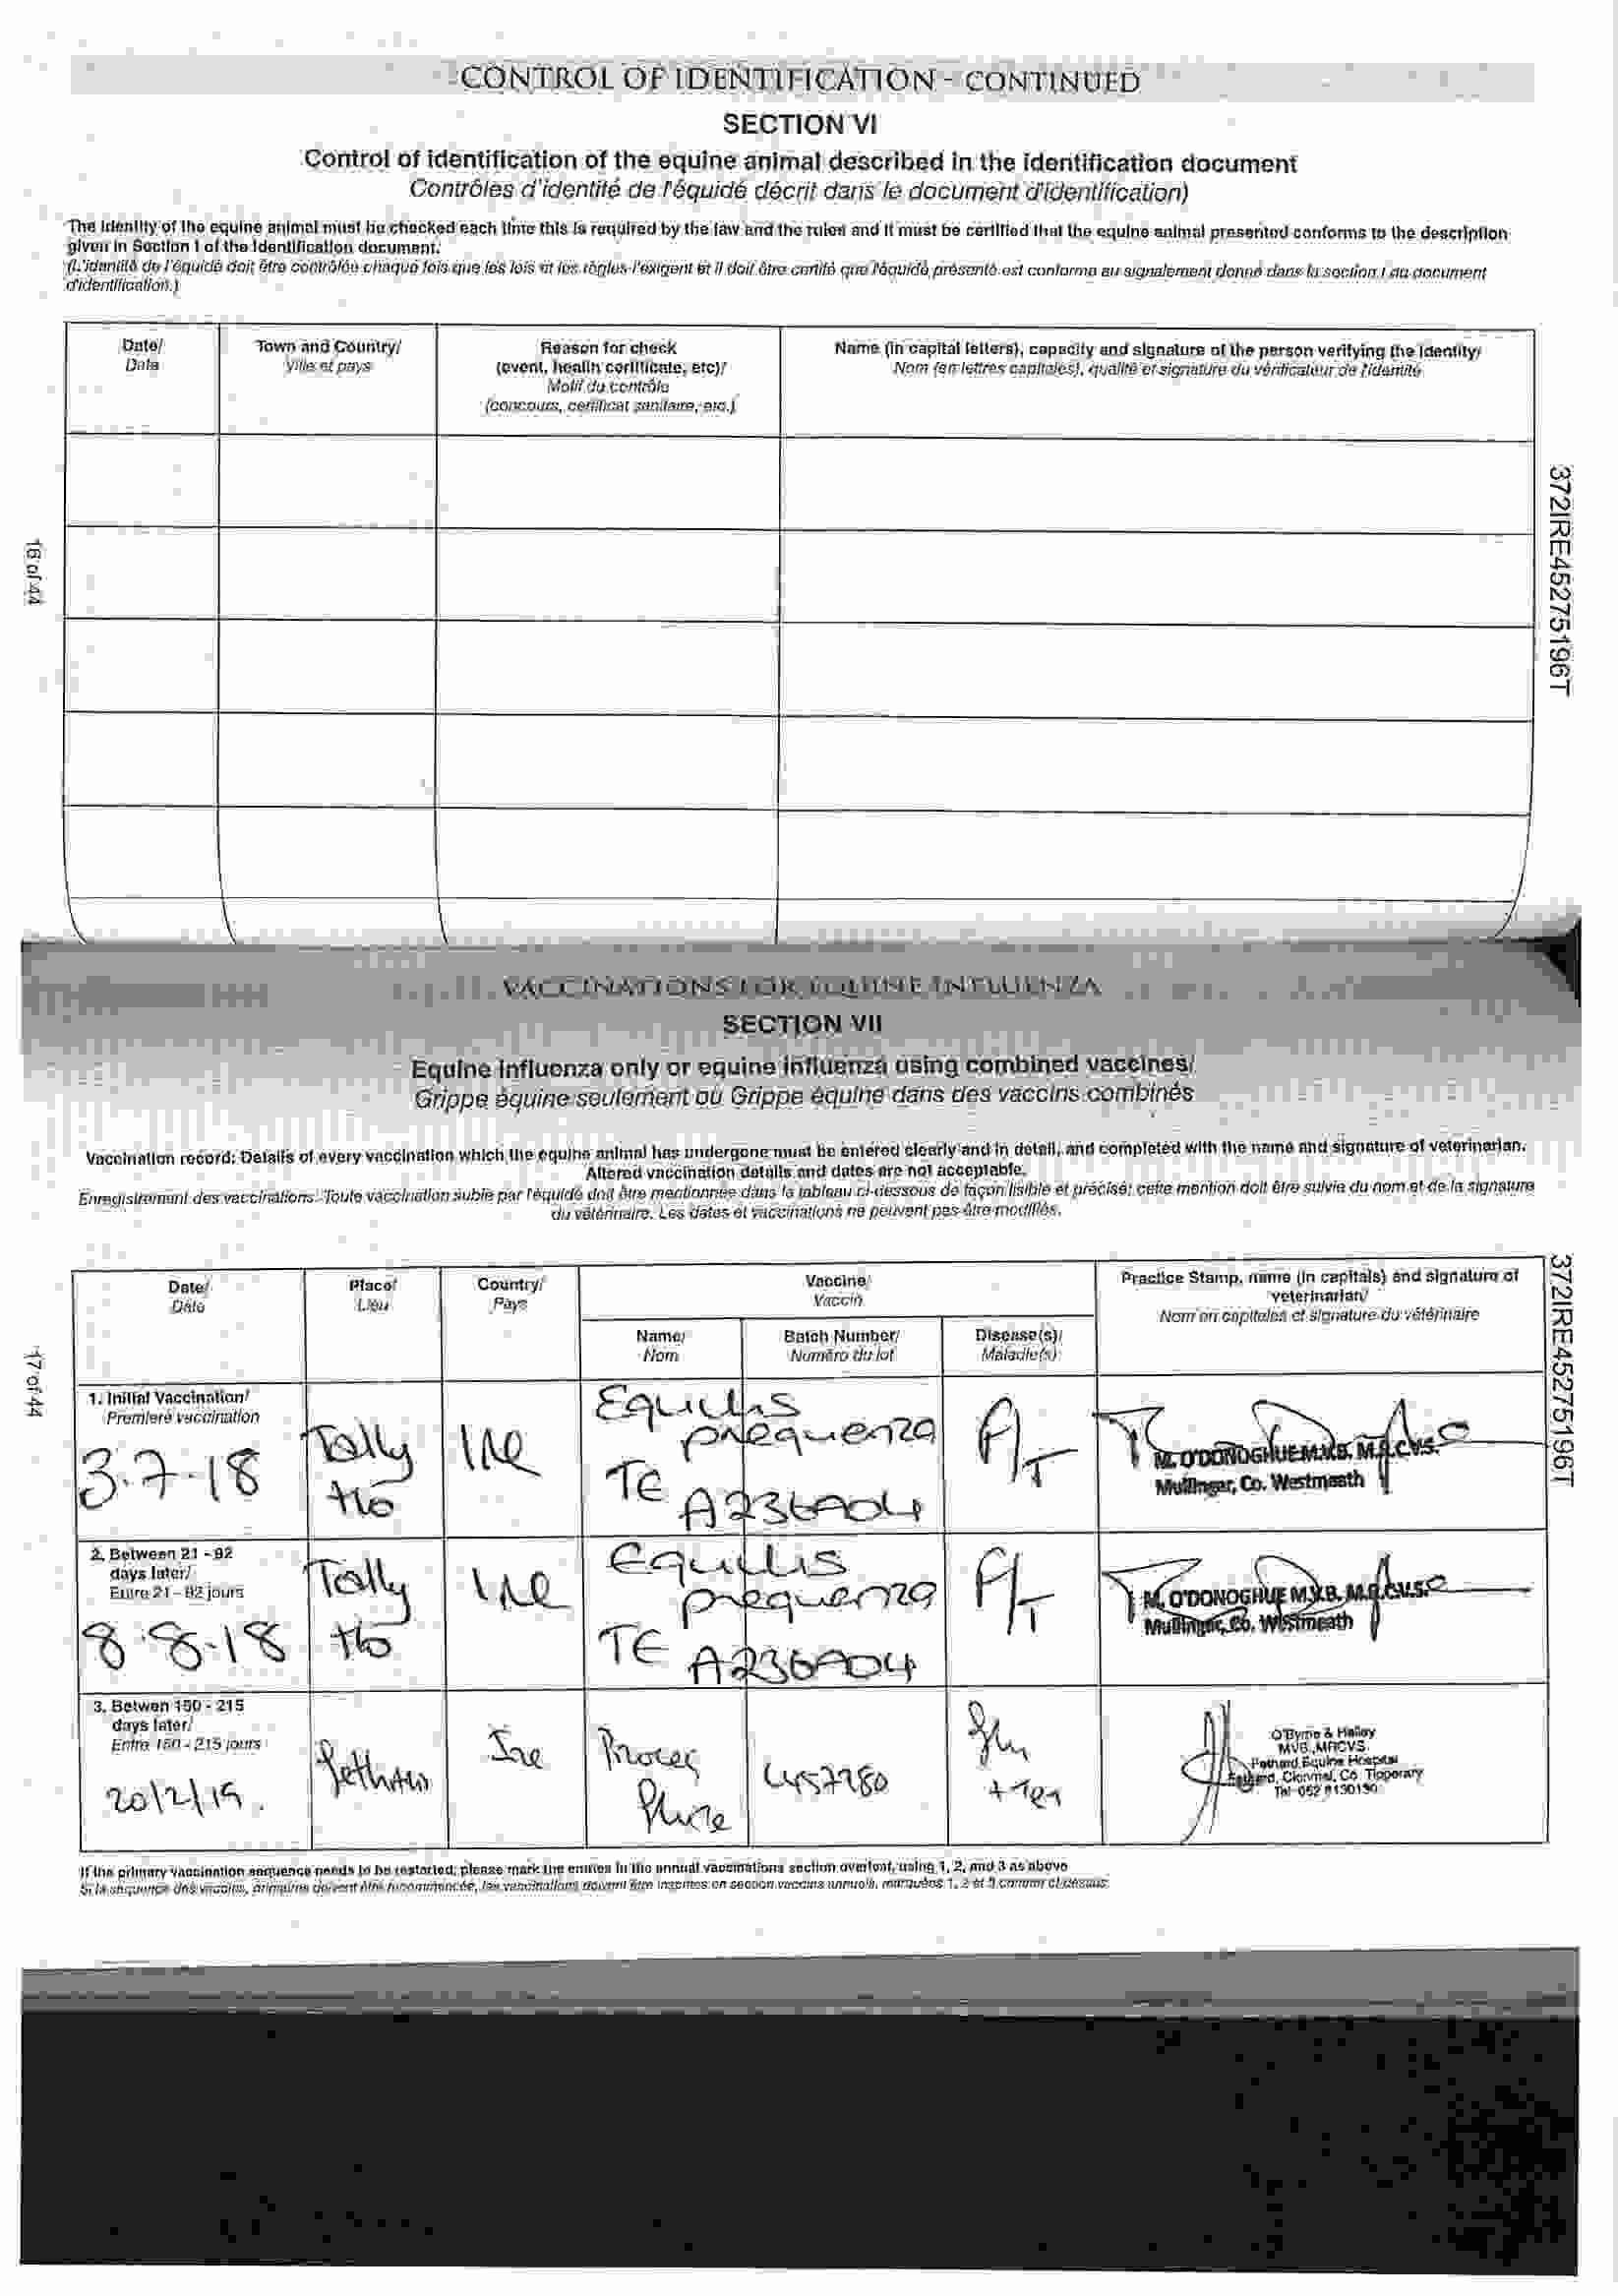 CONTROL OF IDENTIFICATION - CONTINUED
SECTION VI
Control of identification of the equine animal described in the identification document
Contrôles d'identité de l'équidé décrit dans le document d'identification)
The identity of the equine animal must be checked each time this is required by the law and the rules and it must be certified that the equine animal presented conforms to the description
given in Section I of the identification document.
(L'identité de l'équidé doit être contrôlée chaque fois que les lois et les règles l'exigent et il doit être certifié que l'équidé présenté est conforme au signalement donné dans la section I du document
d'identification.)
Date/
Date
Town and Country/
Ville et pays
Reason for check
(event, health certificate, etc)/
Motif du contrôle
(concours, certificat sanitaire, etc.)
Name (in capital letters), capacity and signature of the person verifying the identity/
Nom (en lettres capitales), qualité et signature du vérificateur de l'identité
16 of 44
372IRE45275196T
VACCINATIONS FOR EQUINE INFLUENZA
SECTION VII
Equine influenza only or equine influenza using combined vaccines/
Grippe équine seulement ou Grippe équine dans des vaccins combinés
Vaccination record: Details of every vaccination which the equine animal has undergone must be entered clearly and in detail, and completed with the name and signature of veterinarian.
Altered vaccination details and dates are not acceptable.
Enregistrement des vaccinations: Toute vaccination subie par l'équidé doit être mentionnée dans le tableau ci-dessous de façon lisible et précise; cette mention doit être suivie du nom et de la signature
du vétérinaire. Les dates et vaccinations ne peuvent pas être modifiés.
Date/
Date
Place/
Lieu
Country/
Pays
Vaccine/
Vaccin
Practice Stamp, name (in capitals) and signature of
veterinarian/
Nom en capitales et signature du vétérinaire
Name/
Nom
Batch Number/
Numéro du lot
Disease(s)/
Maladie(s)
1. Initial Vaccination/
Première vaccination
3.7.18
Tally
Ho
Ire
Equilis
prequenza
TE
A236A04
F/T
M. O'DONOGHUE M.V.B. M.R.C.V.S.
Mullingar, Co. Westmeath
2. Between 21 - 92
days later/
Entre 21 - 92 jours
8.8.18
Tally
Ho
Ire
Equilis
prequenza
TE
A236A04
F/T
M. O'DONOGHUE M.V.B. M.R.C.V.S.
Mullingar, Co. Westmeath
3. Betwen 150 - 215
days later/
Entre 150 - 215 jours
20/2/19.
Fethard
Ire
Proteq
Flu Te
L457280
Flu
+ Tet
O'Byrne & Halley
MVB, MRCVS
Fethard Equine Hospital
Fethard, Clonmel, Co. Tipperary
Tel: 052 6130130
17 of 44
372IRE45275196T
If the primary vaccination sequence needs to be restarted, please mark the entries in the annual vaccinations section overleaf, using 1, 2, and 3 as above
Si la séquence des vaccins, primaires doivent être recommencée, les vaccinations doivent être inscrites en section vaccins annuels, marquées 1, 2 et 3 comme ci-dessus